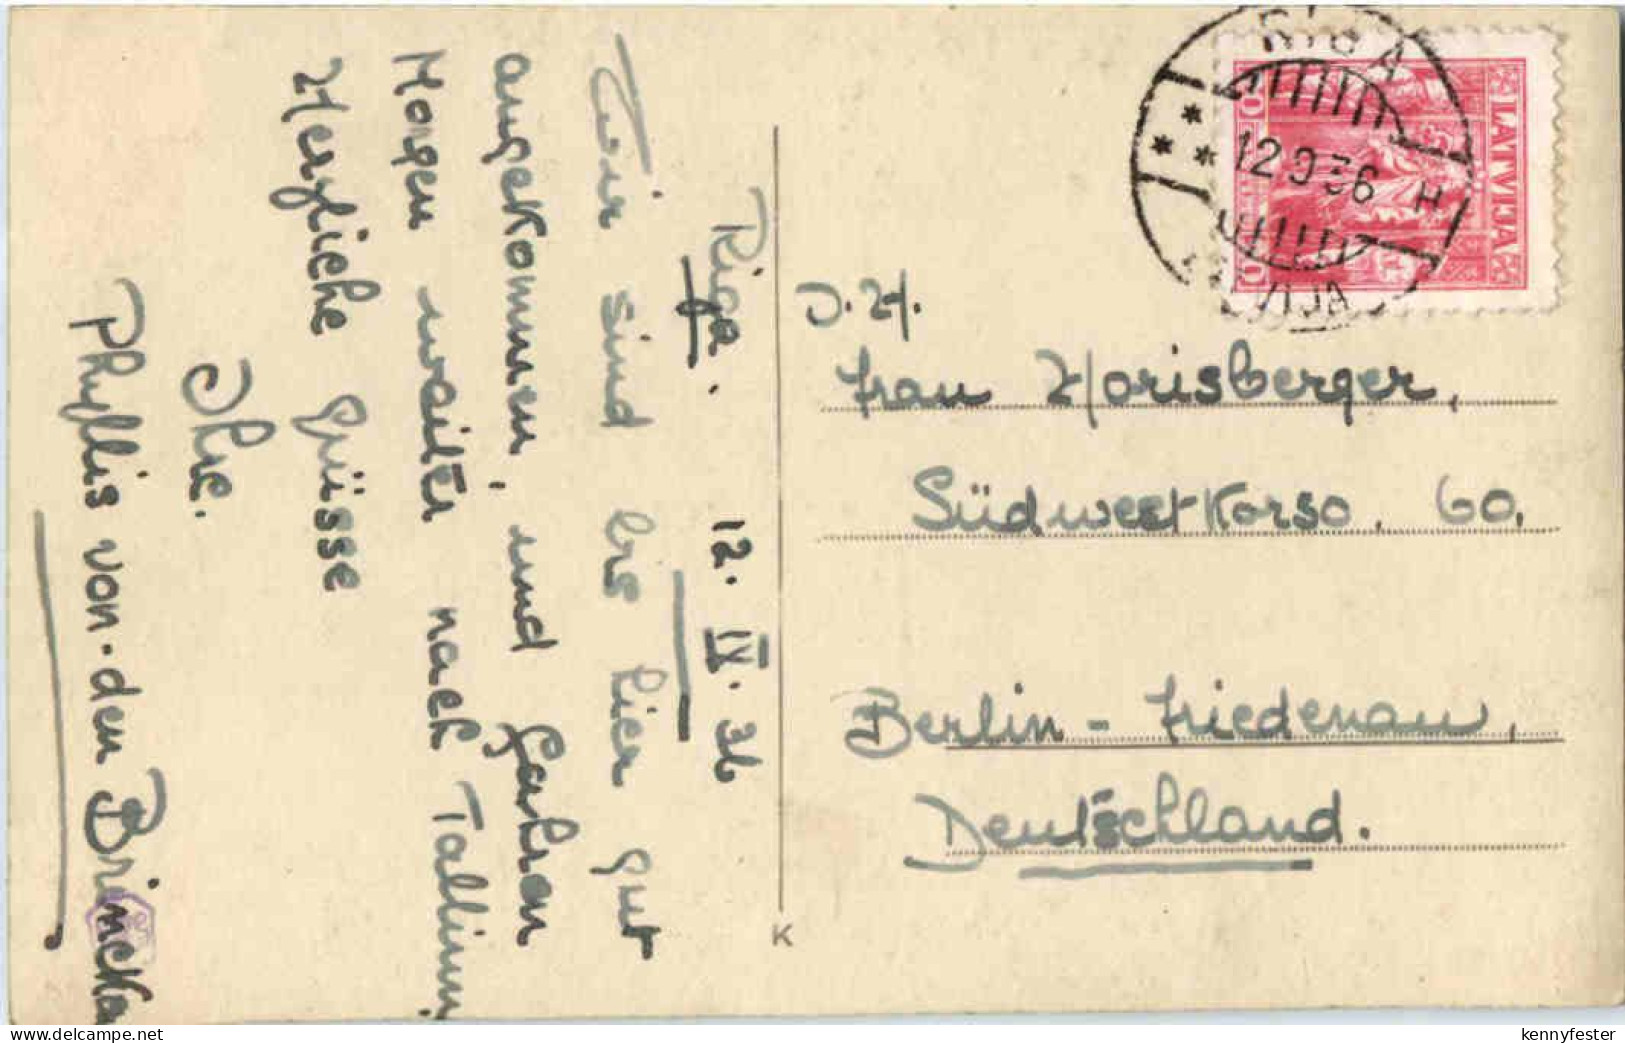 Riga. 12. IV. 36
Wir sind bis hier gut
angekommen, und gahran
Morgen waiter nach Tallinn,
Herzliche Grüsse
Ihre.
Phyllis von-den Brincken
J. H.
Frau Horisberger,
Südwestkorso. 60.
Berlin-Friedenau,
Deutschland.
K
RIGA
12 9 36 H
LATVIJA
kennyfester